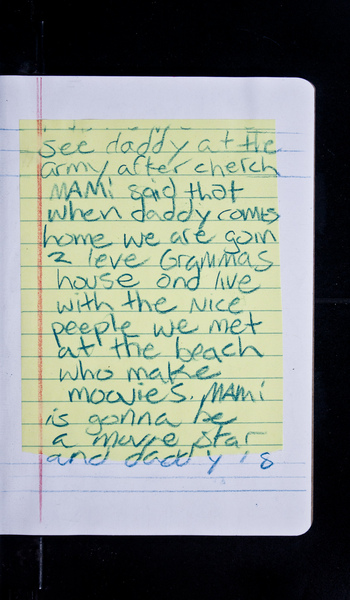 see daddy at the
army after cherch
MAMi said that
when daddy comes
home we are goin
2 leve GraMMas
house and live
with the Nice
peeple we met
at the beach
who make
moovies. MAMi
is gonna be
a movie star
and daddy is